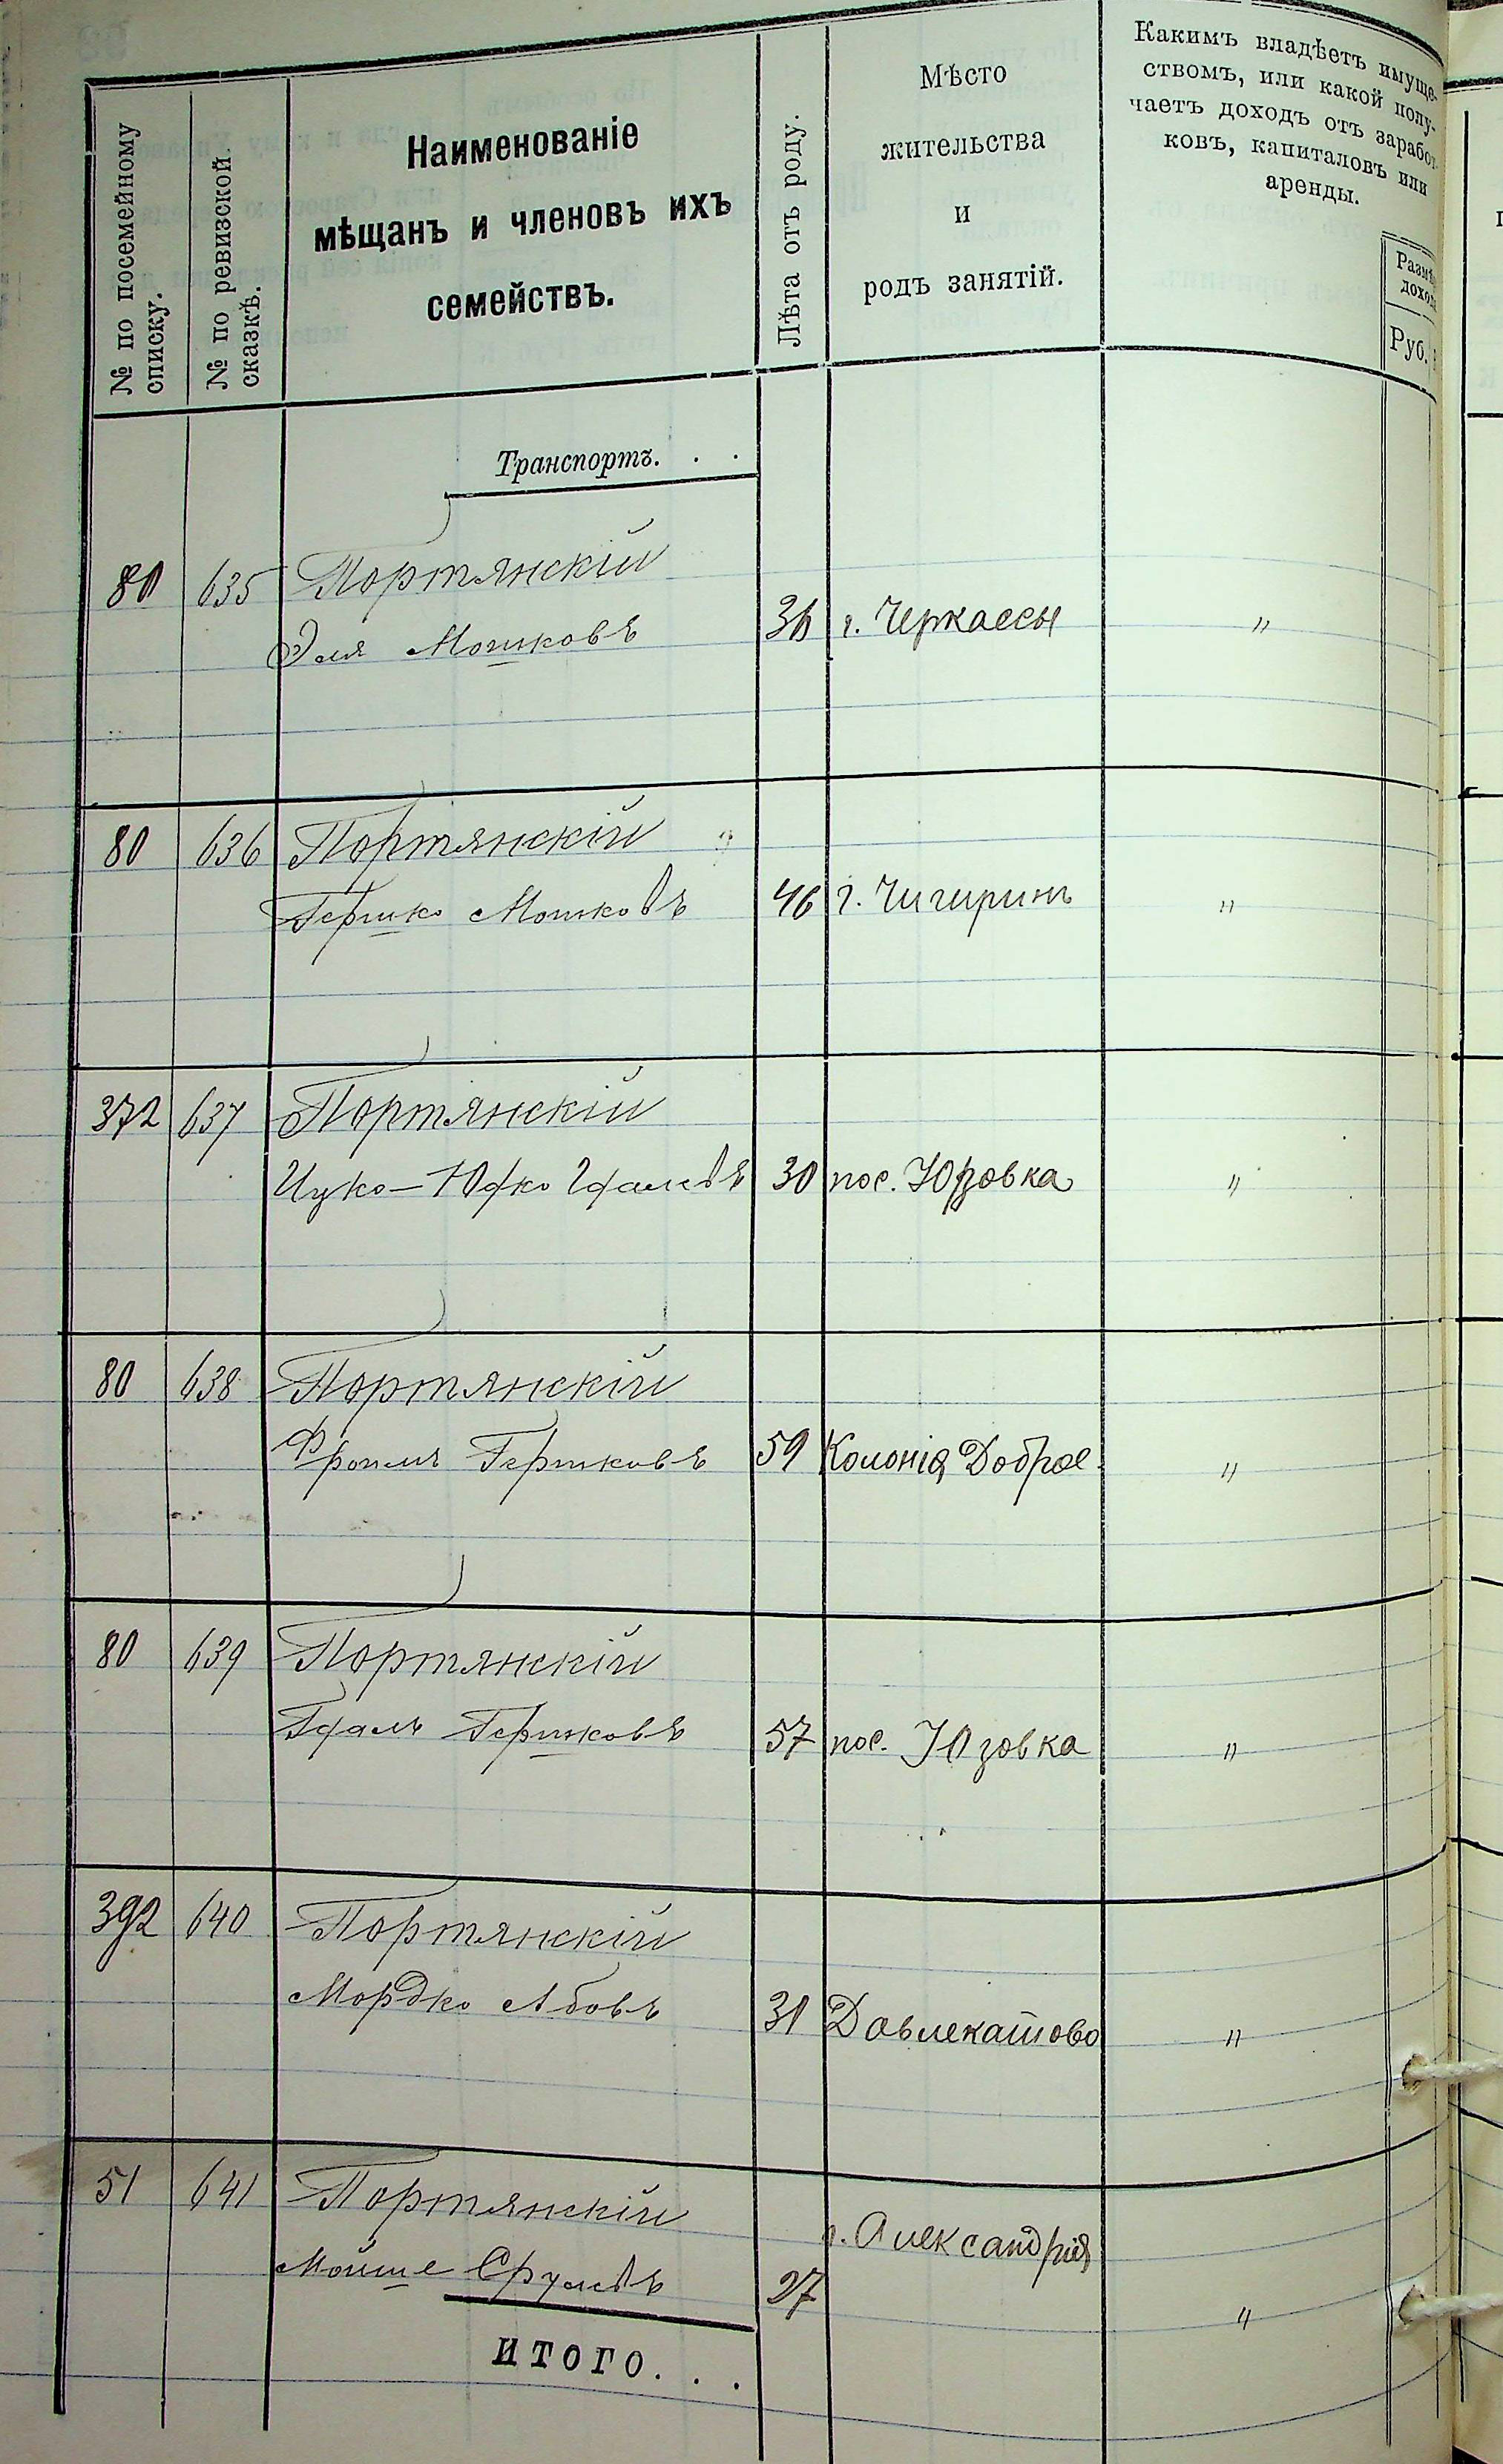 № по посемейному
списку.
№ по ревизской
сказкѣ.
Наименованіе
мѣщанъ и членовъ ихъ
семействъ.
Лѣта отъ роду.
Мѣсто
жительства
и
родъ занятій.
Какимъ владѣетъ имуще-
ствомъ, или какой полу-
чаетъ доходъ отъ заработ-
ковъ, капиталовъ или
аренды.
Руб.
Транспортъ. . .
80 635 Портянскій
Эля Мошковъ 36 г. Черкассы "
80 636 Портянскій
Гершко Мошковъ 46 г. Чигиринъ "
372 637 Портянскій
Ицко-Юфко Гдалевъ 30 пос. Юзовка "
80 638 Портянскій
Фроимъ Гершковъ 59 Колонія Доброе "
80 639 Портянскій
Гдаль Гершковъ 57 пос. Юзовка "
392 640 Портянскій
Мордко Абовъ 31 Давлеканово "
51 641 Портянскій
г. Александрія
Мойше Срулевъ 27 "
ИТОГО. . .